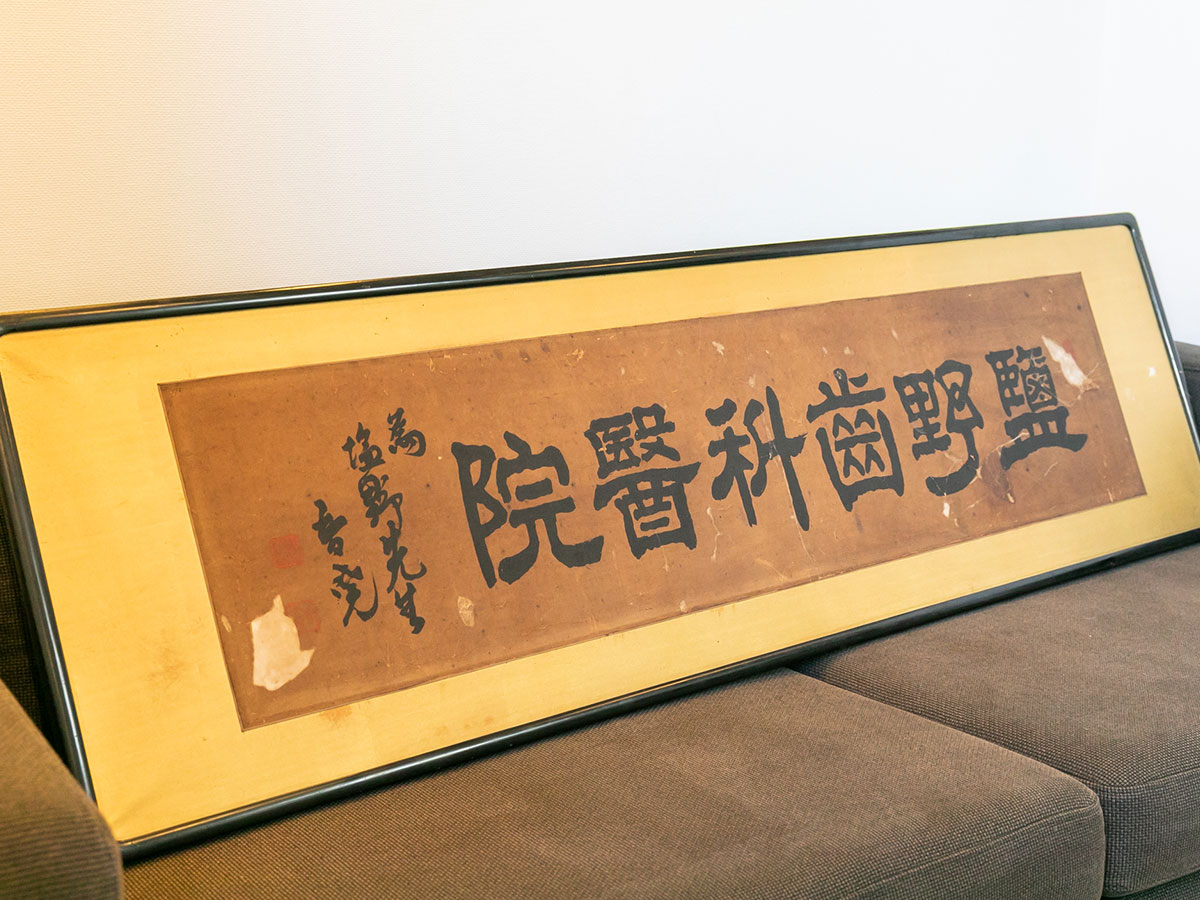 鹽野齒科醫院
為
塩野先生